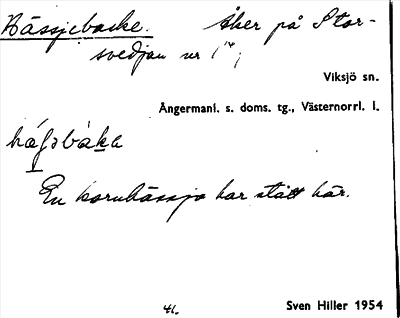 Hässjebacke. Åker på Stor-
svedjan nr 1
Viksjö sn.
Ångermanl. s. doms. tg., Västernorrl. l.
En kornhässja har stått här.
41.
Sven Hiller 1954